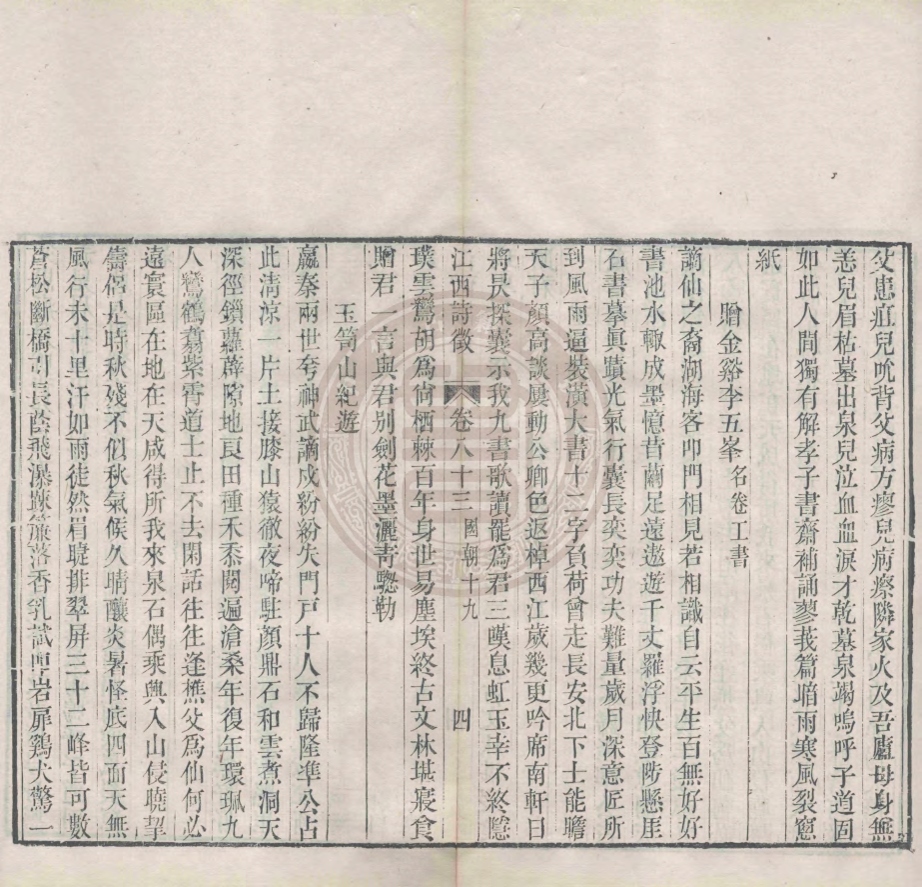 父患疽兒吮背父病方瘳兒病瘵隣家火及吾廬母身無
恙兒眉枯墓出泉兒泣血血淚才乾墓泉竭嗚呼子道固
如此人間獨有解孝子書齋補誦蓼莪篇堦雨寒風裂窻
紙
贈金谿李五峯名卷工書
謫仙之裔湖海客叩門相見若相識自云平生百無好好
書池水輙成墨憶昔繭足遠遨遊千丈羅浮快登陟懸厓
石書摹眞蹟光氣行囊長奕奕功夫難量歲月深意匠所
到風雨逼裝潢大書十二字負荷曾走長安北下士能瞻
天子顏高談屢動公卿色返棹西江歲幾更吟席南軒日
將昃探囊示我九書歌讀罷爲君三嘆息虹玉幸不終隱
江西詩徵 卷八十三 國朝十九 四
璞雲鵞胡爲尙栖棘百年身世易塵埃終古文林堪寢食
贈君一言與君别劍花墨灑靑驄勒
玉笥山紀遊
嬴秦兩世夸神武謫戍紛紛失門戸十人不歸隆準公占
此清凉一片土接膝山猿徹夜啼駐顏鼎石和雲煮洞天
深徑鎖蘿薜隙地良田種禾黍閱遍滄桑年復年環珮九
人鸞鶴翥紫霄道士止不去閑話往往逢樵父爲仙何必
遠寰區在地在天咸得所我來泉石偶乘興入山侵曉挈
儔侶是時秋殘不似秋氣候久晴釀炎暑怪底四面天無
風行未十里汗如雨徒然眉睫排翠屏三十二峰皆可數
蒼松斷橋引長陰飛瀑踈簾落香乳試叩岩扉鷄犬驚一